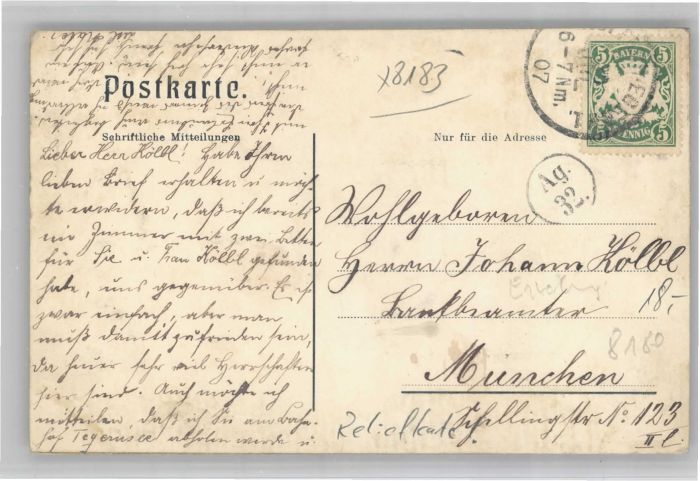 Postkarte.
Schriftliche Mitteilungen
Nur für die Adresse
18183
6-7 Nm.
07
BAYERN
5
5
PFENNIG
Ag.
32.
Lieber Herr Kölbl! Habe Ihren
lieben Brief erhalten u möch-
te erwidern, daß ich bereits
ein Zimmer mit zwei Betten
für Sie u. Frau Kölbl gefunden
habe, uns gegenüber. Es ist
zwar einfach, aber man
muß damit zufrieden sein,
da heuer sehr viel Herrschaften
hier sind. Auch möchte ich
mitteilen, daß ich Sie am Bahn-
hof Tegernsee abholen werde u.
Wohlgeboren
Herrn Johann Kölbl
Bankbeamter
18,-
8180
München
Schellingstr No. 123
II l.
Reliefkarte!